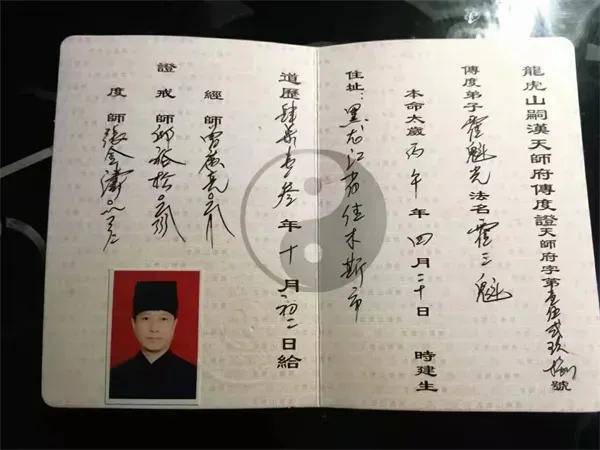 龍虎山嗣漢天師府傳度證天師府字第壹伍貳玖號
傳度弟子霍魁光法名霍三魁
本命太歲丙午年四月二十日 時建生
住址：黑龙江省佳木斯市
道歷肆柒壹叁年十月初二日給
經師曾廣亮
證戒師邱裕松
度師張金濤